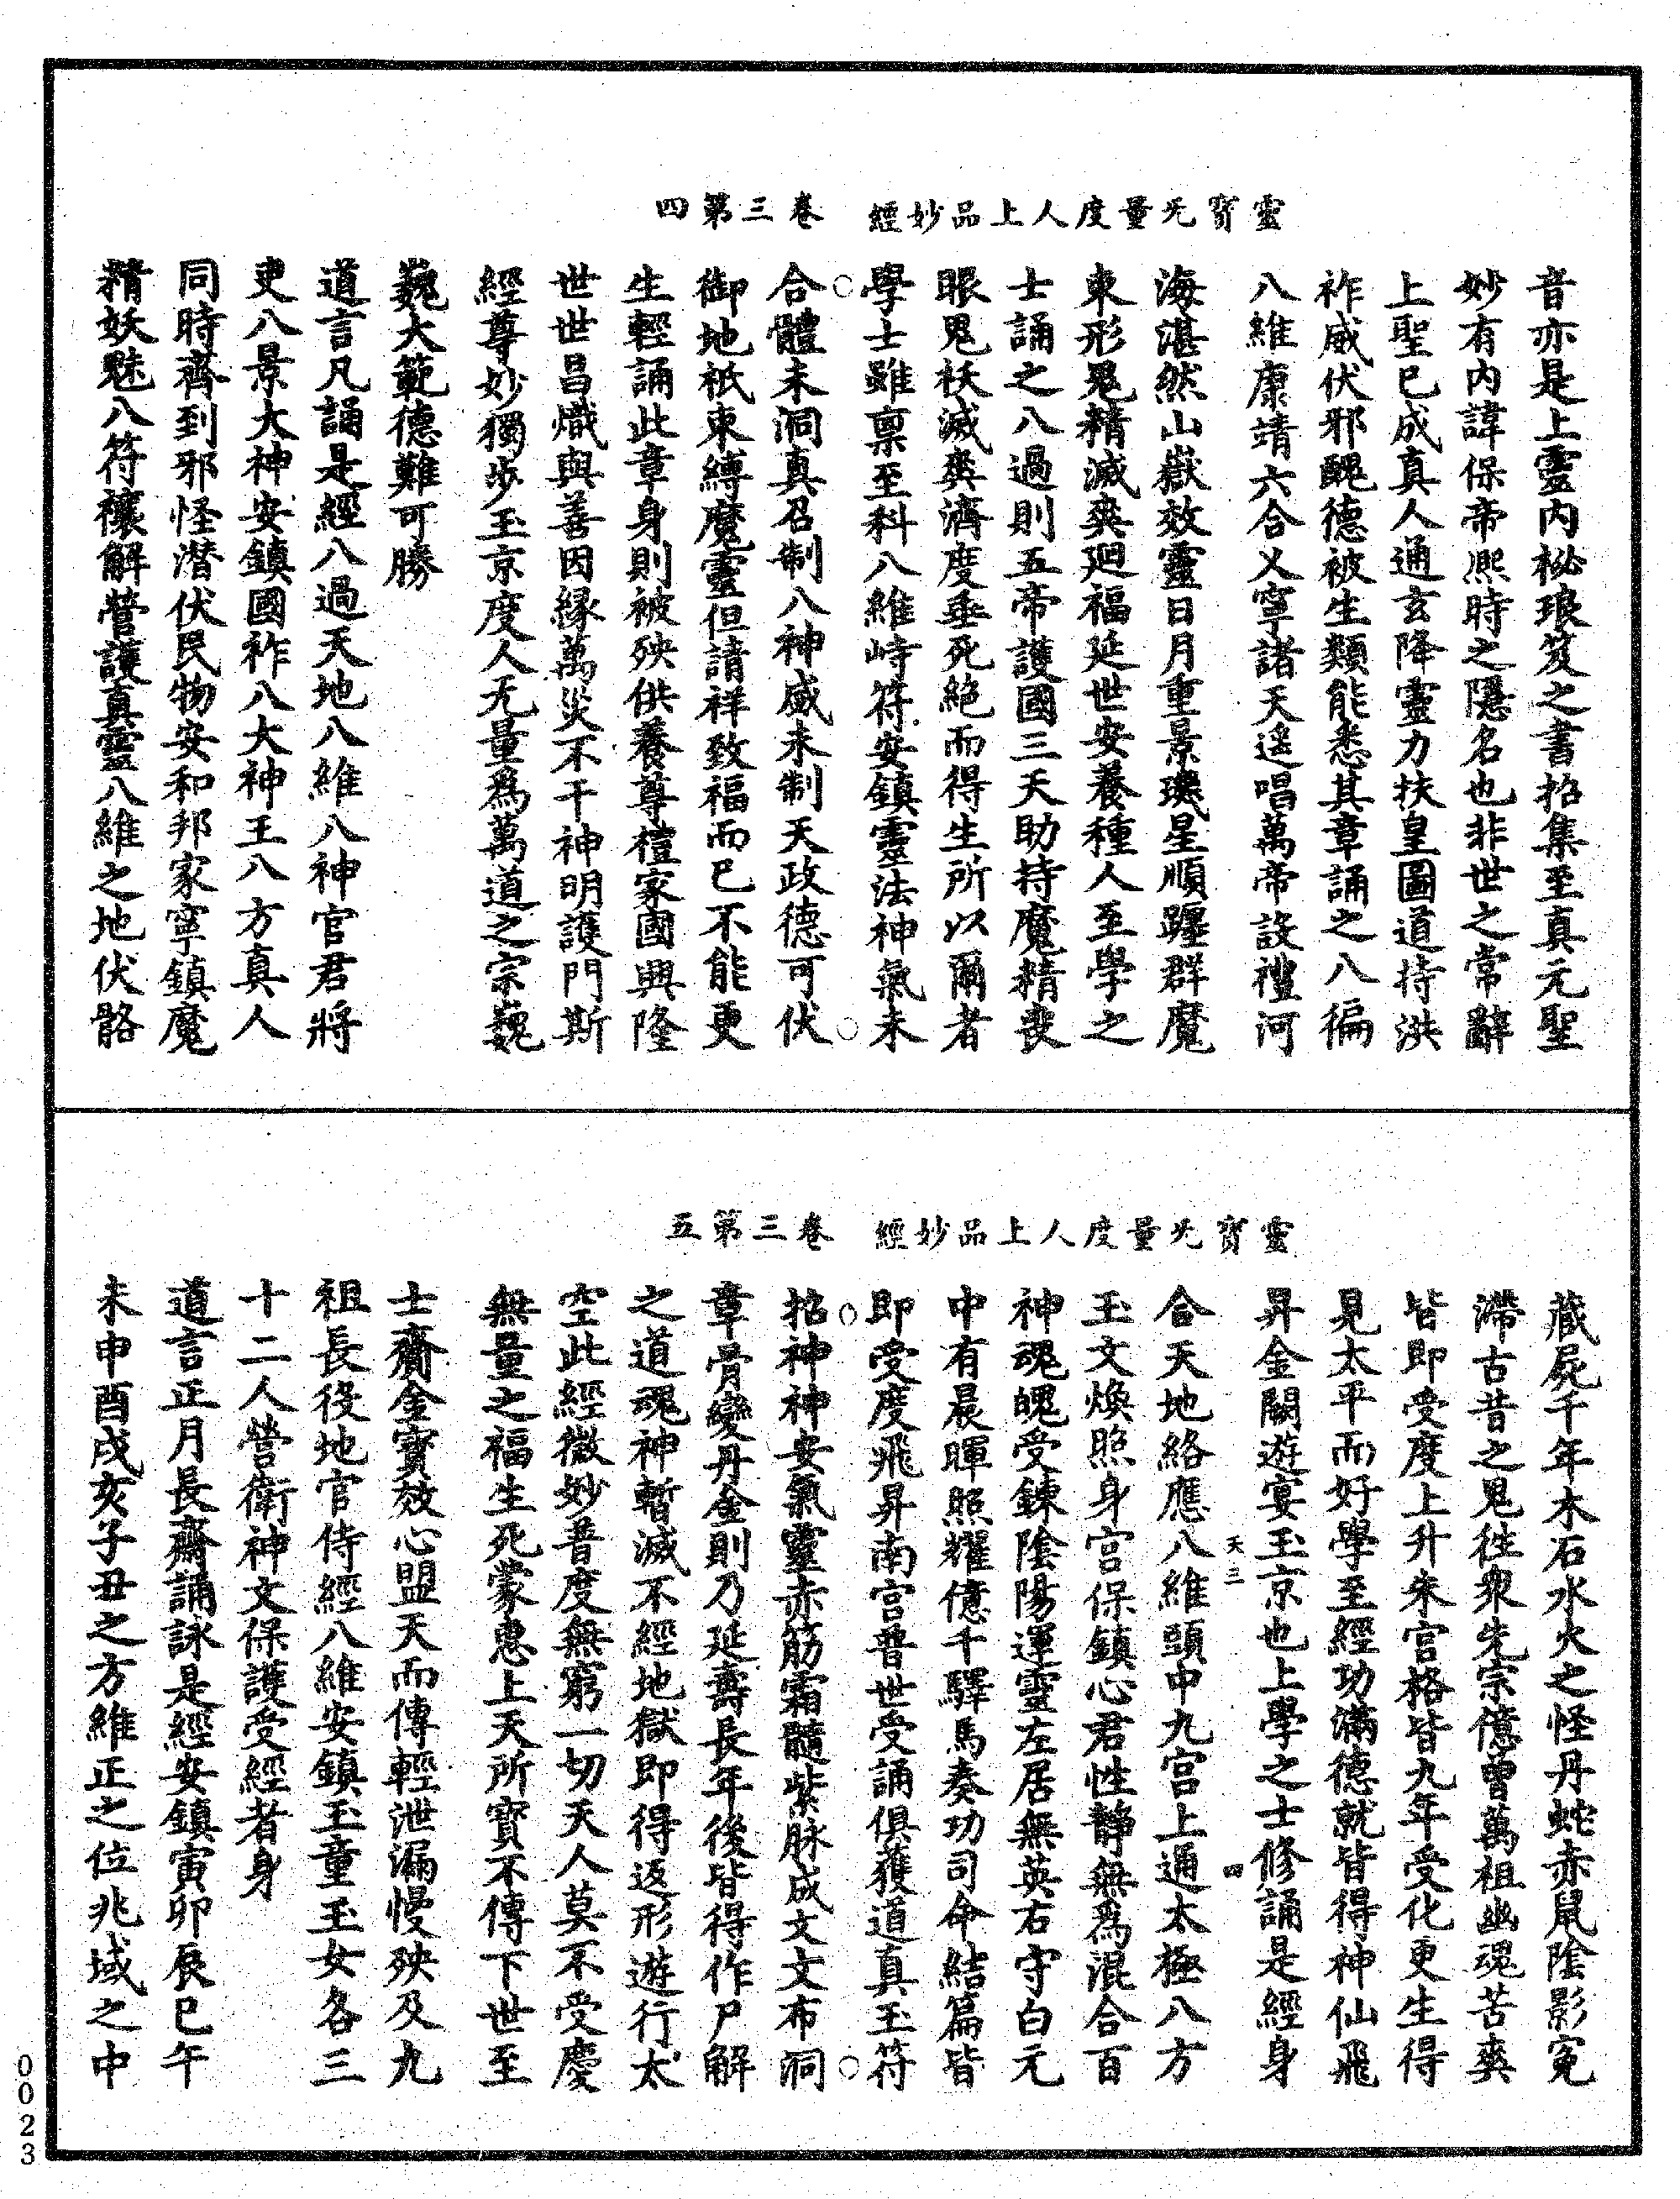 靈寶无量度人上品妙經 卷三第四
音亦是上靈內祕琅笈之書招集至真元聖
妙有內諱保帝熈時之隱名也非世之常辭
上聖已成真人通玄降靈力扶皇圖道持洪
祚威伏邪醜德被生類能悉其章誦之八徧
八維康靖六合乂寧諸天遥唱萬帝設禮河
海湛然山嶽效靈日月重景璣星順躔群魔
束形鬼精滅爽廻福延世安養種人至學之
士誦之八過則五帝護國三天助持魔精喪
眼鬼袄滅爽濟度垂死絕而得生所以爾者
學士雖禀至科八維峙符安鎮靈法神氣未
合體未洞真召制八神威未制天政德可伏
御地祇束縛魔靈但請祥致福而已不能更
生輕誦此章身則被殃供養尊禮家國興隆
世世昌熾與善因緣萬災不干神明護門斯
經尊妙獨步玉京度人无量爲萬道之宗巍
巍大範德難可勝
道言凡誦是經八過天地八維八神官君將
吏八景大神安鎮國祚八大神王八方真人
同時齊到邪怪潜伏民物安和邦家寧鎮魔
精妖魅八符禳解營護真靈八維之地伏骼
靈寶无量度人上品妙經 卷三第五
藏屍千年木石水火之怪丹蛇赤鼠陰影寃
滯古昔之鬼徃衆先宗億曾萬祖幽魂苦爽
皆即受度上升朱宫格皆九年受化更生得
見太平而好學至經功滿德就皆得神仙飛
昇金闕遊宴玉京也上學之士修誦是經身
天三 四
合天地絡應八維頭中九宫上通太極八方
玉文煥照身宫保鎮心君性静無爲混合百
神魂魄受鍊陰陽運靈左居無英右守白元
中有晨暉照耀億千驛馬奏功司命結篇皆
即受度飛昇南宫普世受誦俱獲道真玉符
招神神安氣靈赤筋霜髓紫脉成文文布洞
章骨變丹金則乃延壽長年後皆得作尸解
之道魂神暫滅不經地獄即得返形遊行太
空此經微妙普度無窮一切天人莫不受慶
無量之福生死蒙惠上天所寶不傳下世至
士齎金寶效心盟天而傳輕泄漏慢殃及九
祖長役地官侍經八維安鎮玉童玉女各三
十二人營衛神文保護受經者身
道言正月長齋誦詠是經安鎮寅卯辰巳午
未申酉戌亥子丑之方維正之位兆域之中
0023